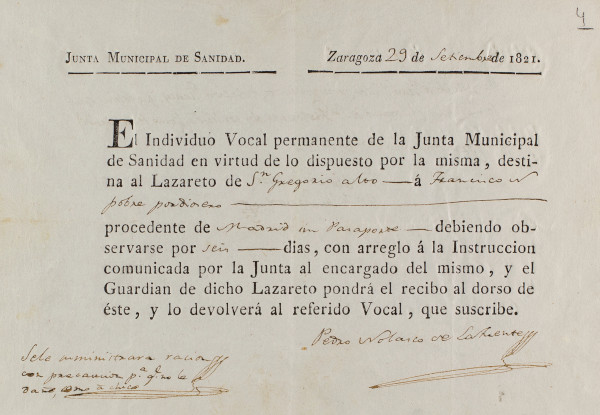 4
JUNTA MUNICIPAL DE SANIDAD. Zaragoza 29 de Setiembre de 1821.
El Individuo Vocal permanente de la Junta Municipal
de Sanidad en virtud de lo dispuesto por la misma, desti-
na al Lazareto de Sn Gregorio alto á Francisco N
pobre pordiosero
procedente de Madrid sin Pasaporte debiendo ob-
servarse por seis dias, con arreglo á la Instruccion
comunicada por la Junta al encargado del mismo, y el
Guardian de dicho Lazareto pondrá el recibo al dorso de
éste, y lo devolverá al referido Vocal, que suscribe.
Pedro Nolasco de Lafuente
Sele suministrara racion
con precaucion pa. qe. no le
dañe